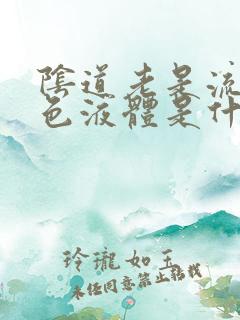 陰道老是流
色液體是什
玲瓏如玉
未經同意禁止轉載